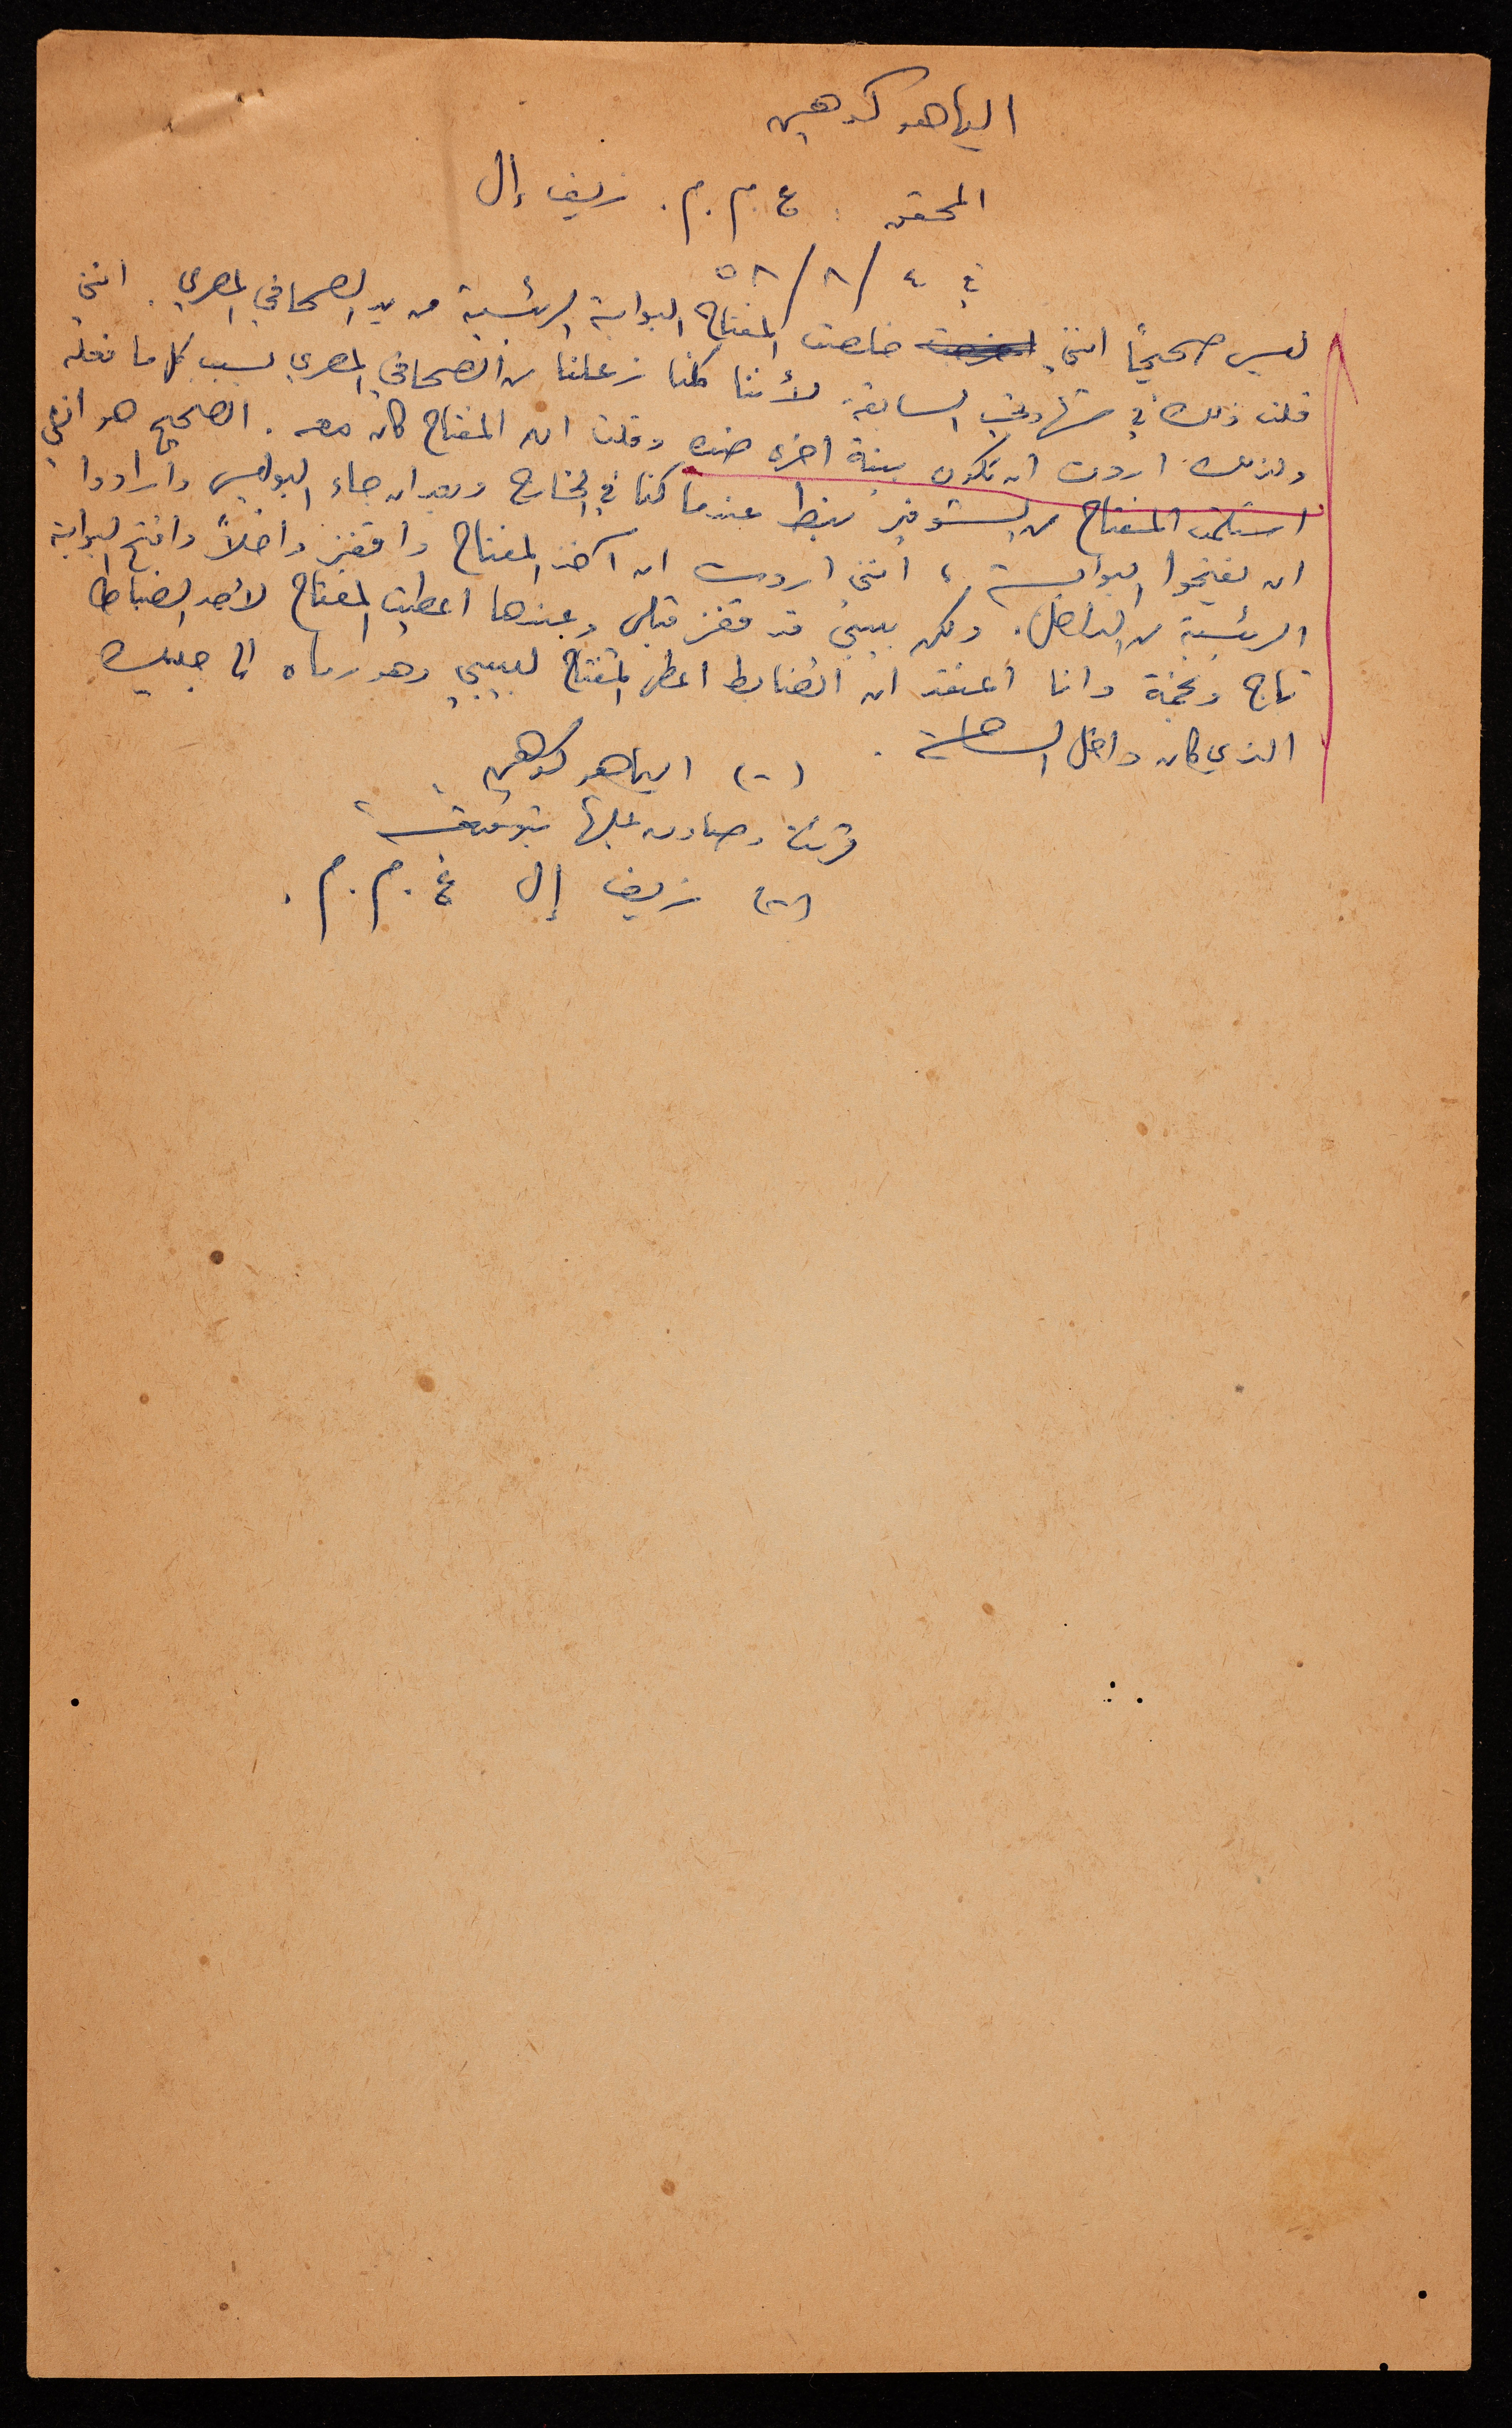 الياهو كوهين
المحقق : ع.م.م. زئيف إل
في ٤/٨/٥٨
ليس صحيحًا انني خلصت المفتاح البوابة الرئيسية من يد الصحافي المصري. انني
قلت ذلك في شهادتي السابقة لأننا كلنا زعلنا من الصحافي المصري بسبب كل ما فعله
ولذلك اردت ان تكون بينة اخرى ضده وقلت ان المفتاح كان معه. الصحيح هو انني
استلمت المفتاح من عندما كنا في الخارج وبعد ان جاء البوليس وارادوا
ان يفتحوا البوابة، انني اردت ان آخذ المفتاح واقفز داخلاً وافتح البوابة
الرئيسية من الداخل. ولكن بيبي قد قفز قبلي وعندها اعطيت المفتاح لأحد الضباط
تاج ونجمة وانا أعتقد ان الضابط اعطى المفتاح لبيبي وهو رماه الى
الذي كان داخل الساحة.
(-) الياهو كوهين
قرئت وصادق عليها بتوقيعه
(-) زئيف إل ع.م.م.